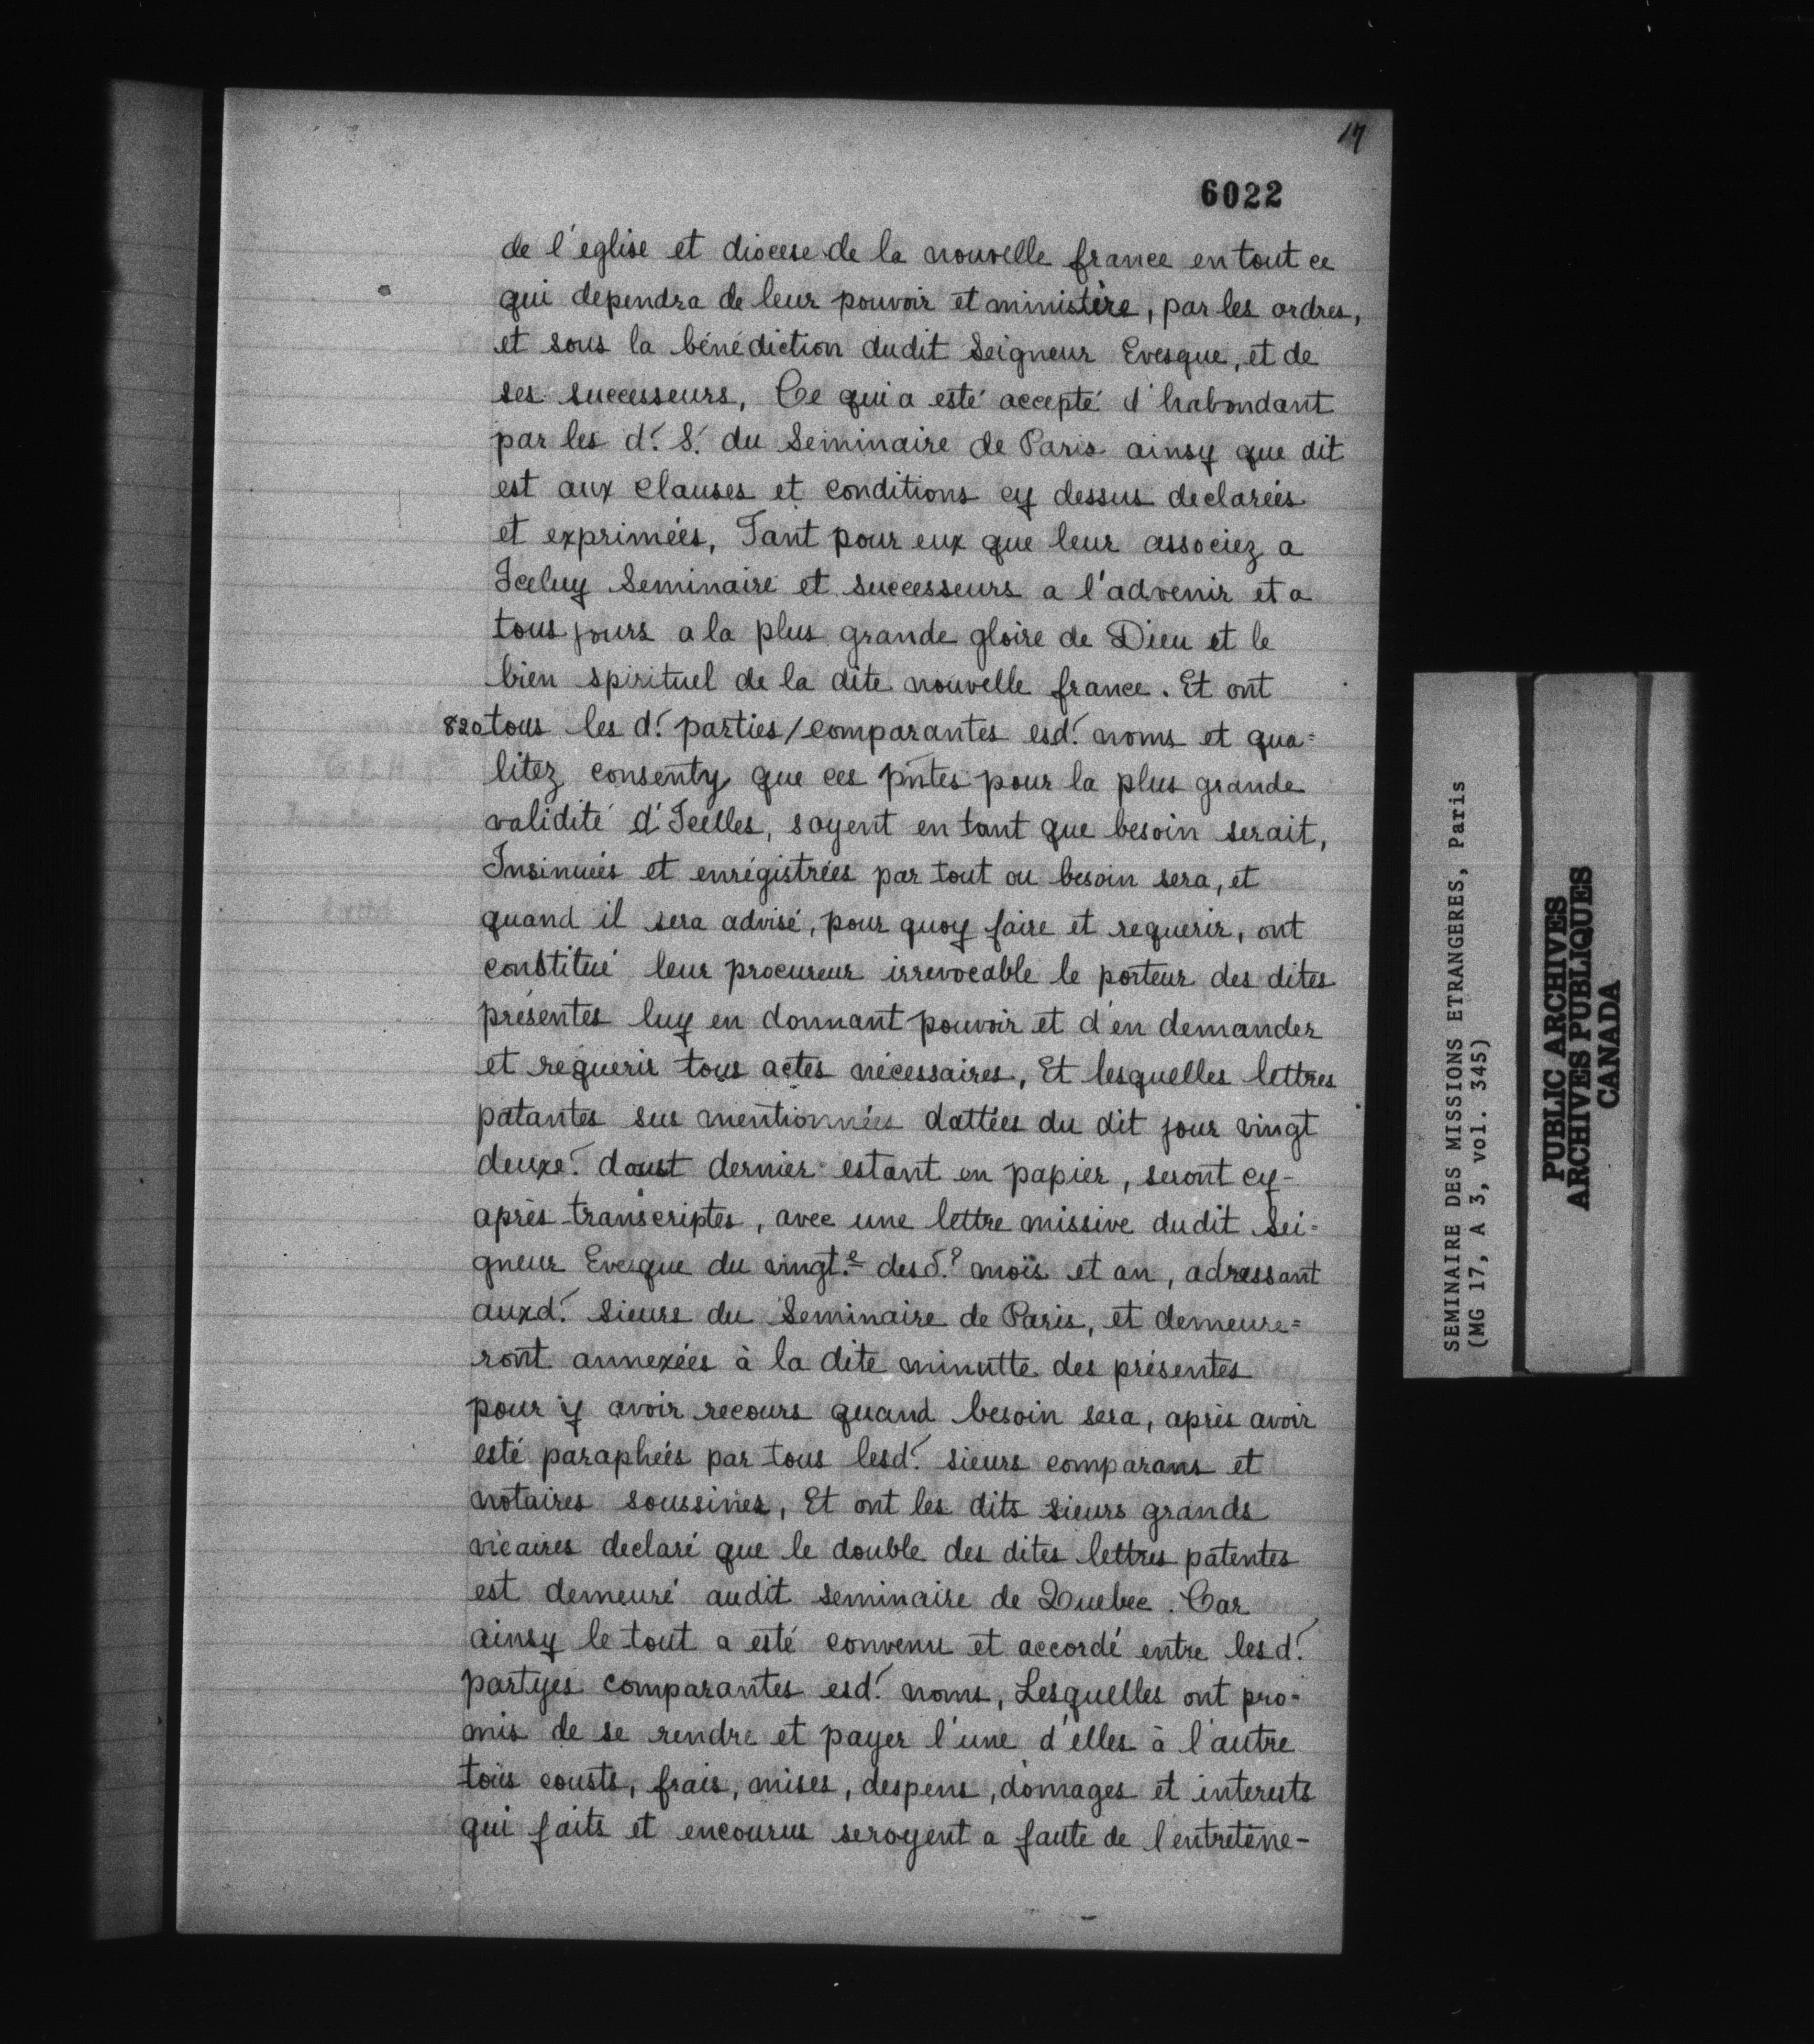 17
6022
de l'eglise et diocese de la nouvelle france en tout ce
qui dependra de leur pouvoir et ministère, par les ordres,
et sous la bénédiction dudit Seigneur Evesque, et de
ses successeurs, Ce qui a esté accepté d'habondant
par les d. S. du Seminaire de Paris ainsy que dit
est aux clauses et conditions cy dessus declareés
et exprimeés, Tant pour eux que leur associez a
Iceluy Seminaire et successeurs a l'advenir et a
tous jours a la plus grande gloire de Dieu et le
bien spirituel de la dite nouvelle france. Et ont
820 tous les d. parties/comparantes esd. noms et qua=
litez consenty que ces pntes pour la plus grande
validité d'Icelles, soyent en tant que besoin serait,
Insinueés et enrégistrées par tout ou besoin sera, et
quand il sera advisé, pour quoy faire et requerir, ont
constitué leur procureur irrevocable le porteur des dites
présentes luy en donnant pouvoir et d'en demander
et requerir tous actes nécessaires, Et lesquelles lettres
patantes sus mentionnées dattées du dit jour vingt
deuxe. d'aust dernier estant en papier, seront cy-
après transcriptes, avec une lettre missive dudit Sei=
gneur Evesque du vingt.e desd. mois et an, adressant
auxd. Sieurs du Seminaire de Paris, et demeure=
ront annexées à la dite minutte des présentes
pour y avoir recours quand besoin sera, après avoir
esté parapheés par tous lesd. sieurs comparans et
notaires soussinez, Et ont les dits sieurs grands
vicaires declaré que le double des dites lettres patentes
est demeuré audit seminaire de Quebec. Car
ainsy le tout a esté convenu et accordé entre les d.
partyes comparantes esd. noms, Lesquelles ont pro=
mis de se rendre et payer l'une d'elles à l'autre
tous cousts, frais, mises, despens, domages et interests
qui faits et encourus seroyent a faute de l'entretene-
SEMINAIRE DES MISSIONS ETRANGERES, Paris
(MG 17, A 3, vol. 345)
PUBLIC ARCHIVES
ARCHIVES PUBLIQUES
CANADA